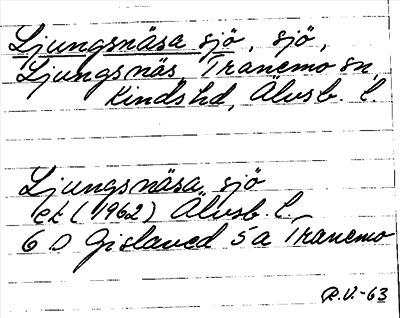 Ljungsnäsa sjö, sjö,
Ljungsnäs Tranemo sn,
Kinds hd, Älvsb. l.
Ljungsnäsa sjö
ek (1962) Älvsb. l.
6 D Gislaved 5a Tranemo
R.V.-63